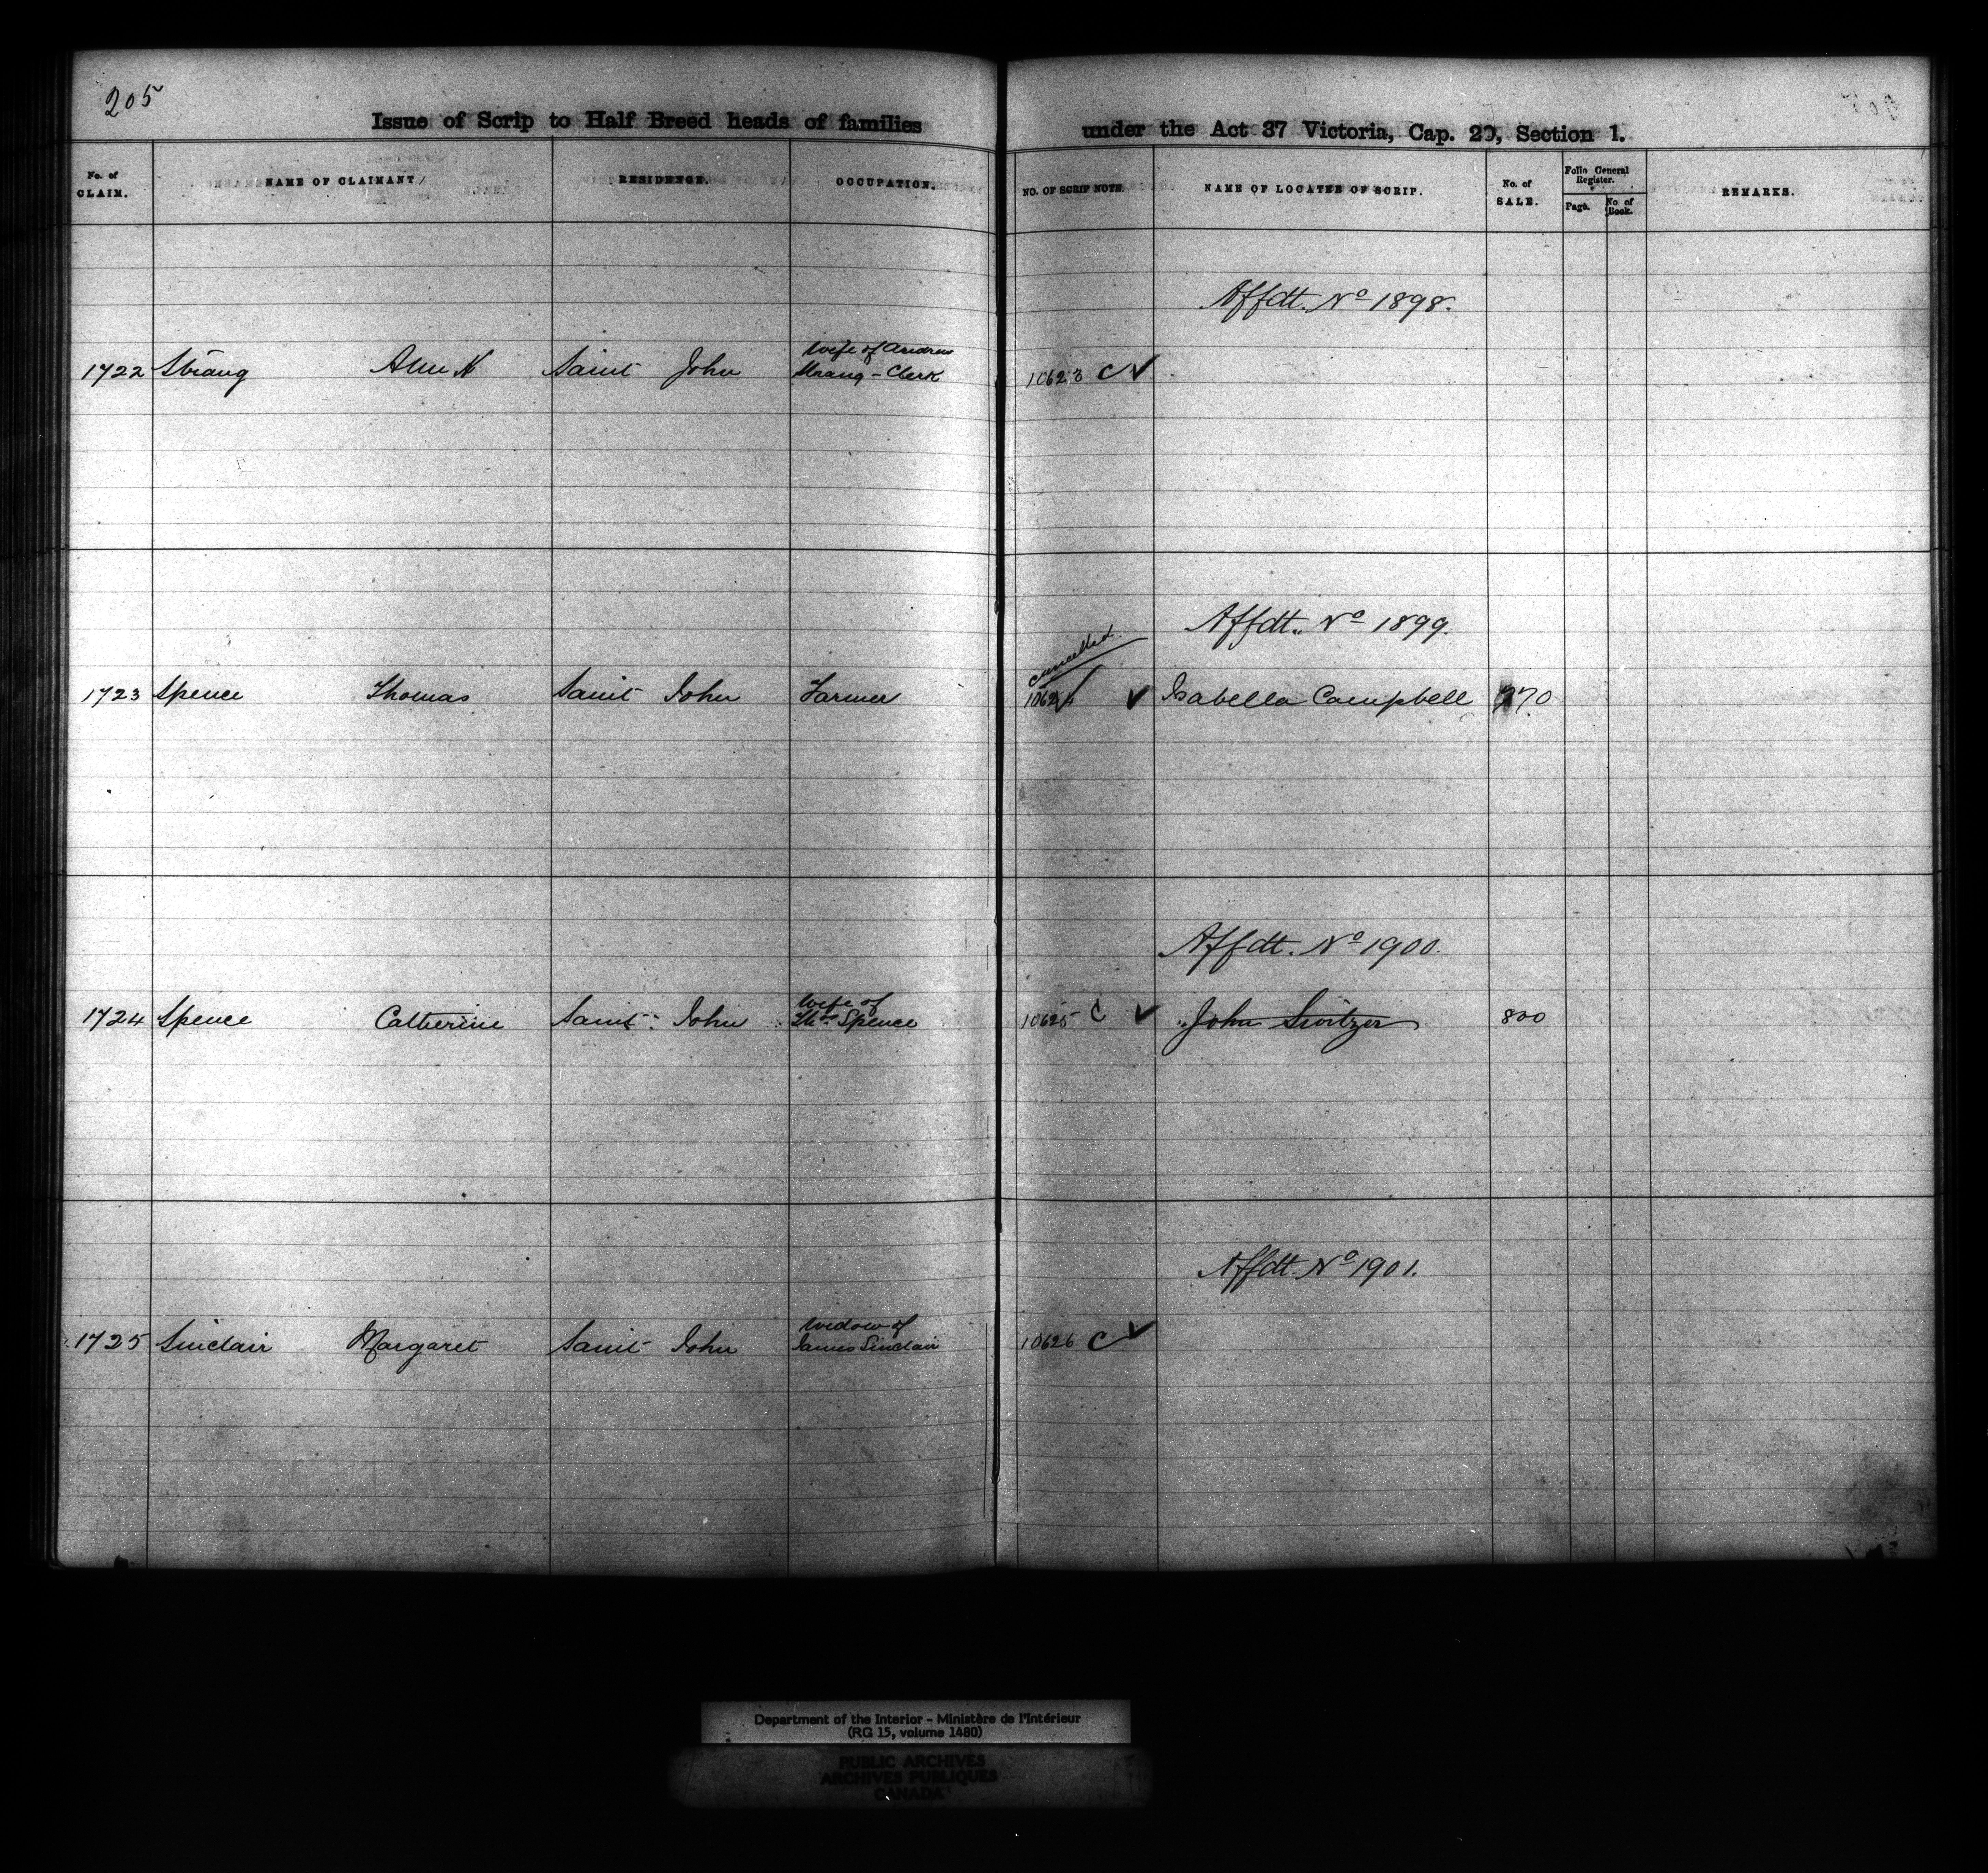 205
Issue of Scrip to Half Breed heads of families under the Act 37 Victoria, Cap. 20, Section 1.
No. of CLAIM. NAME OF CLAIMANT RESIDENCE. OCCUPATION. NO. OF SCRIP NOTE. NAME OF LOCATEE OF SCRIP. No. of SALE. Folio General Register. Page. No. of Book. REMARKS.
Affdt. No 1898.
wife of Andrew
1722 Strang Ann N Saint John Strang - Clerk 10623 C ✓
Affdt. No 1899.
Cancelled
1723 Spence Thomas Saint John Farmer 10624 ✓ Isabella Campbell 770
Affdt. No 1900.
Wife of
1724 Spence Catherine Saint John Thos Spence 10625 C ✓ John Switzer 800
Affdt. No 1901.
Widow of
1725 Sinclair Margaret Saint John James Sinclair 10626 C ✓
Department of the Interior - Ministère de l'Intérieur
(RG 15, volume 1480)
PUBLIC ARCHIVES
ARCHIVES PUBLIQUES
CANADA